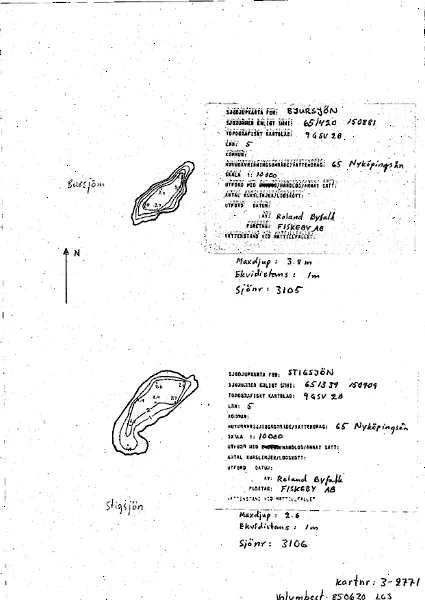 SJÖDJUPKARTA FÖR: BJURSJÖN
SJÖNUMMER ENLIGT SMHI: 651420 150881
TOPOGRAFISKT KARTBLAD: 9 G SV 28
LÄN: 5
KOMMUN:
HUVUDAVRINNINGSOMRÅDE/VATTENDRAG: 65 Nyköpingsån
SKALA 1: 10000
UTFÖRD MED /HANDLOD/ANNAT SÄTT:
ANTAL KURSLINJER/LODSKOTT:
UTFÖRD DATUM:
AV: Roland Byfalk
FÖRETAG: FISKEBY AB
VATTENSTÅND VID MÄTTILLFÄLLE:
Bursjön
N
Maxdjup: 3.8 m
Ekvidistans: 1m
Sjönr: 3105
SJÖDJUPKARTA FÖR: STIGSJÖN
SJÖNUMMER ENLIGT SMHI: 651339 150909
TOPOGRAFISKT KARTBLAD: 9 G SV 28
LÄN: 5
KOMMUN:
HUVUDAVRINNINGSOMRÅDE/VATTENDRAG: 65 Nyköpingsån
SKALA 1: 10000
UTFÖRD MED /HANDLOD/ANNAT SÄTT:
ANTAL KURSLINJER/LODSKOTT:
UTFÖRD DATUM:
AV: Roland Byfalk
FÖRETAG: FISKEBY AB
VATTENSTÅND VID MÄTTILLFÄLLE
Stigsjön
Maxdjup: 2.6
Ekvidistans: 1m
Sjönr: 3106
kartnr: 3-2771
Volymbest. 850620 LGS